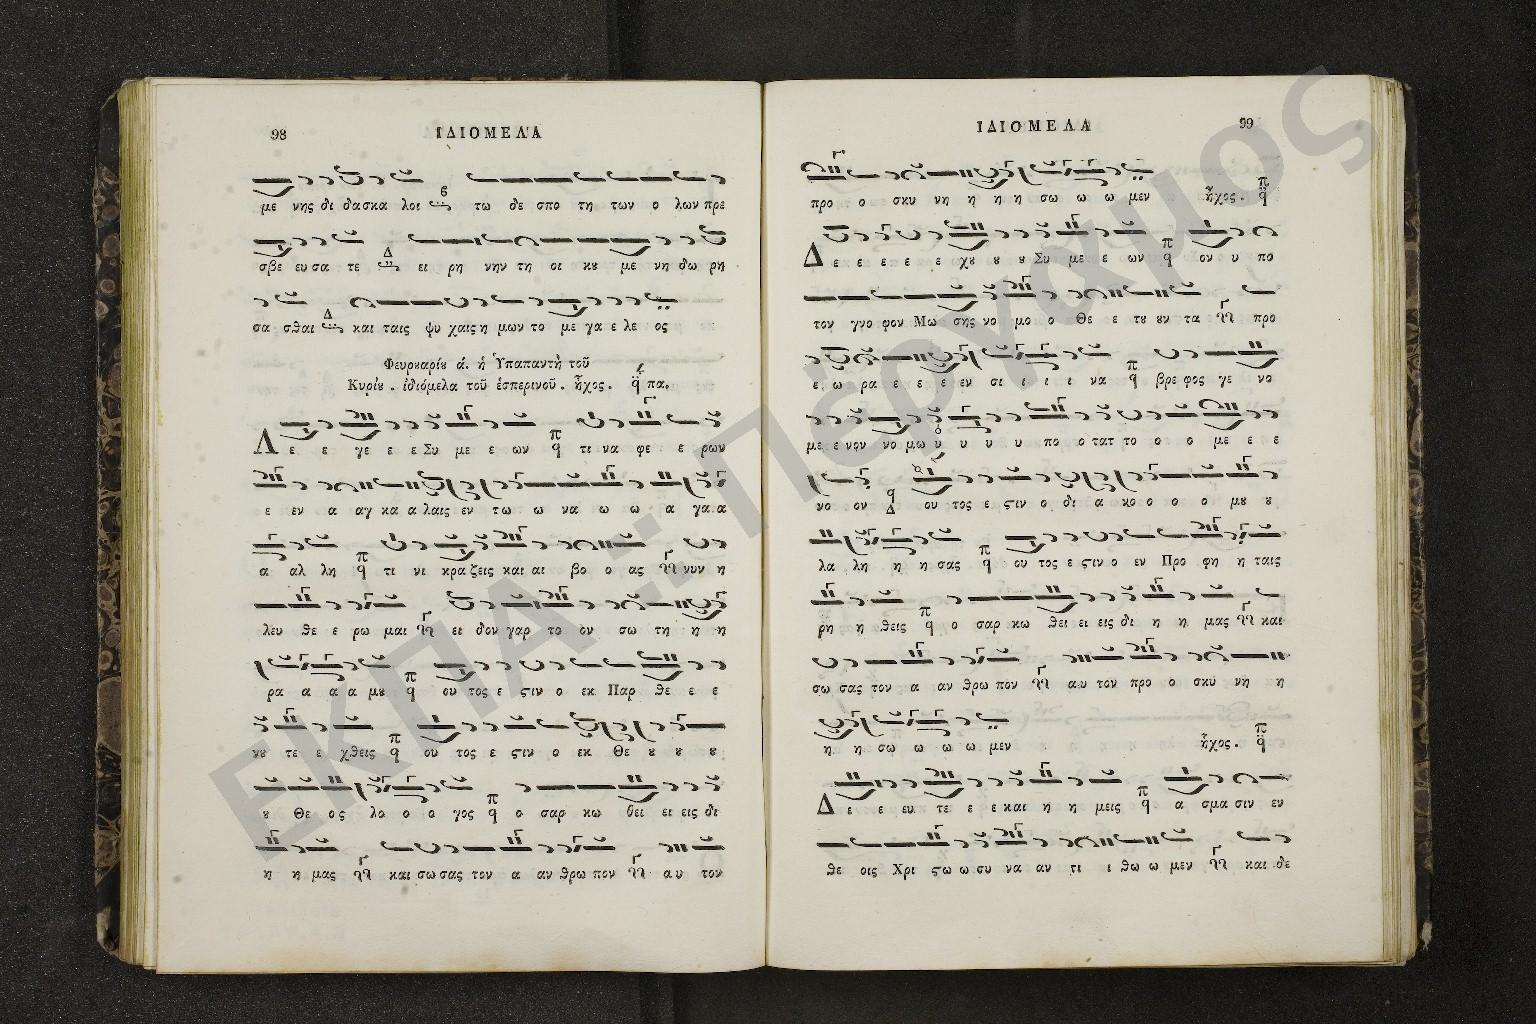 98 ΙΔΙΟΜΕΛΑ
με νης δι δασκα λοι τω δε σπο τη των ο λων πρε
σβε ευσα τε Δ ει ρη νην τη οι κυ με νη δω ρη
σα σθαι Δ και ταις ψυ χαις η μων το με γα ε λε ος
Φευρυαρίȣ ά. ἡ Ὑπαπαντὴ τοῦ
Κυρίȣ. ἰδιόμελα τοῦ ἑσπερινοῦ. ἦχος. πα.
Λ ε ε γε ε ε Συ με ε ων τι να φε ε ρων
ε εν α αγ κα α λαις εν τω ω να ω ω α γα α
α αλ λη τι νι κρα ζεις και αι βο ο ας νυν η
λευ θε ε ρω μαι ει δον γαρ το ον σω τη η η
ρα α α α μȣ ου τος ε ςιν ο εκ Παρ θε ε ε
νȣ τε ε χθεις ου τος ε ςιν ο εκ Θε ȣ ȣ ȣ
ȣ Θε ος λο ο ο γος ο σαρ κω θει ει εις δι
η η μας και σω σας τον α αν θρω πον αυ τον
ΙΔΙΟΜΕΛΑ 99
προ ο σκυ νη η η η σω ω ω μεν ἦχος. π
Δ ε ε ε ε ε χȣ ȣ ȣ Συ με ε ων ον υ πο
τον γνο φον Μω σης νο μο ο Θε ε τȣ ȣν τα προ
ε ω ρα ε ε ε εν σι ι ι ι να βρε φος γε νο
με ε νον νο μω υ υ υ υ πο ο τατ το ο ο με ε ε
νο ον Δ ου τος ε ςιν ο δι α κο ο ο ο μȣ ȣ
λα λη η η σας ου τος ε ςιν ο εν Προ φη η ταις
ρη η θεις ο σαρ κω θει ει εις δι η η μας και
σω σας τον α αν θρω πον αυ τον προ ο σκυ νη η
η η σω ω ω ω μεν ἦχος. π
Δ ε ε ευ τε ε ε και η η μεις α σμα σιν εν
θε οις Χρι ςω ω συ να αν τι ι θω ω μεν και δε
ΕΚΠΑ :: Πέργαμος